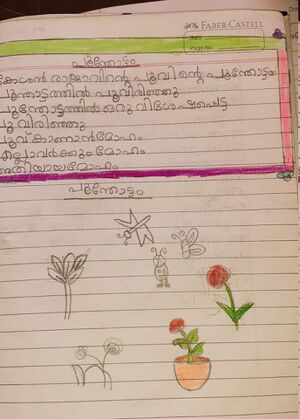 FABER-CASTELL
Date
Page No.
പൂന്തോട്ടം
കേശൻ രാജാവിന്റെ പൂവിന്റെ പൂന്തോട്ടം
പൂന്തോട്ടത്തിൽ പൂവിരിഞ്ഞു
പൂന്തോട്ടത്തിൽ ഒരു വിശേഷപ്പെട്ട
പൂ വിരിഞ്ഞു
പൂവ് കാണാൻ മോഹം
എല്ലാവർക്കും മോഹം
അതിയായ മോഹം
പൂന്തോട്ടം